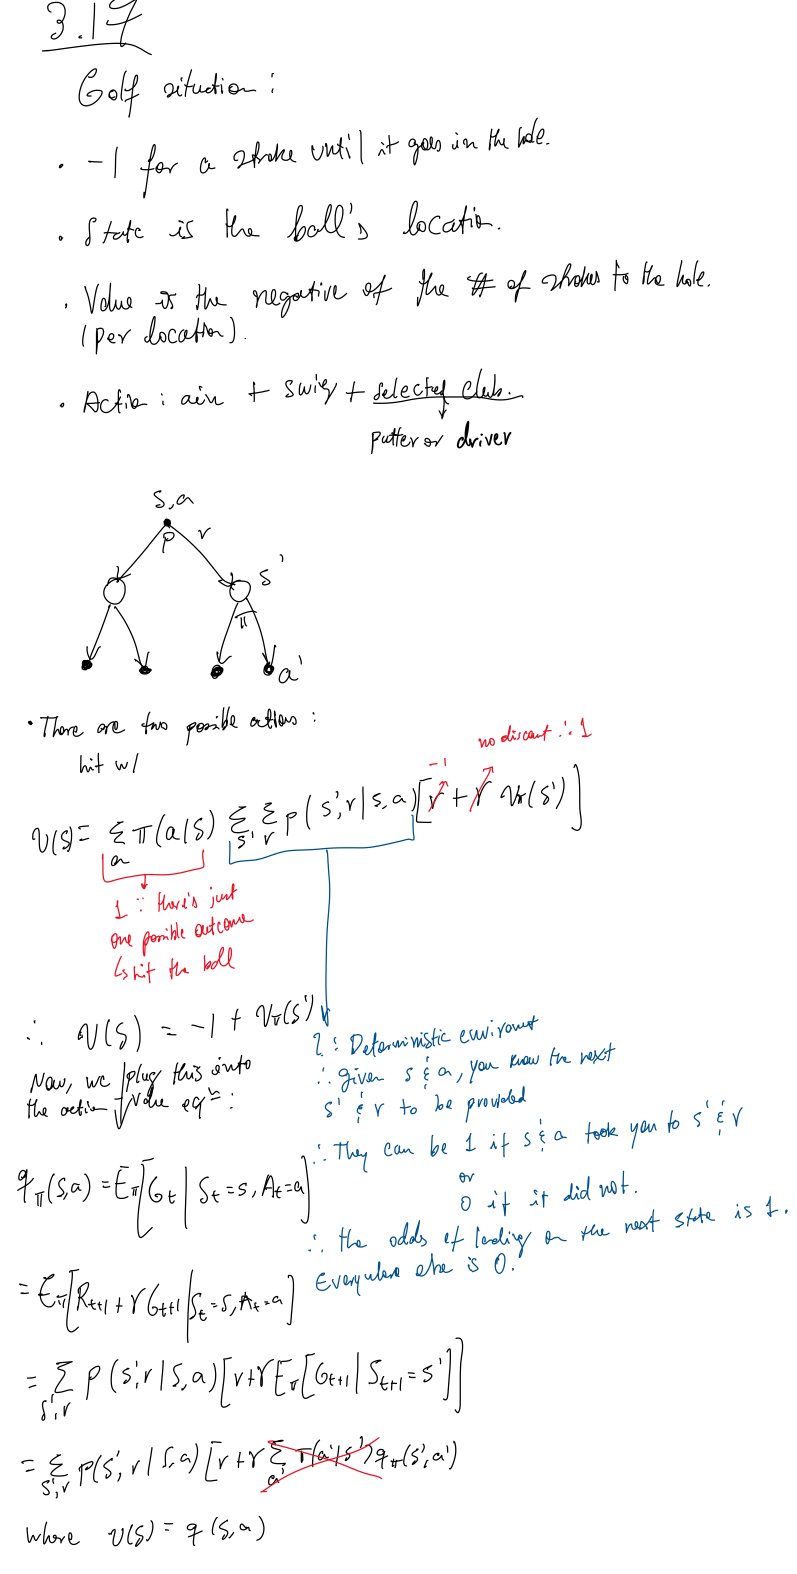 3.17
Golf situation:
• -1 for a stroke until it goes in the hole.
• State is the ball's location.
• Value is the negative of the # of strokes to the hole.
(per location).
• Action: aim + swing + selected club.
putter or driver
S,a
p r
s'
π
a'
• There are two possible actions:
hit w/
no discount ∴ 1
-1
v(s) = Σ_a π(a|s) Σ_s' Σ_r p(s',r|s,a)[r + γ v_π(s')]
1 ∵ there's just
one possible outcome
↳ hit the ball
∴ v(s) = -1 + v_π(s')
Now, we plug this into
the action value eqn:
: Deterministic environment
∴ given s & a, you know the next
s' & r to be provided
∴ They can be 1 if s & a took you to s' & r
or
0 if it did not.
∴ the odds of landing on the next state is 1.
Everywhere else is 0.
q_π(s,a) = E_π[G_t | S_t=s, A_t=a]
= E_π[R_t+1 + γG_t+1 | S_t=s, A_t=a]
= Σ_s',r p(s',r|s,a)[r+γE_π[G_t+1 | S_t+1=s']]
= Σ_s',r p(s',r|s,a)[r+γ Σ_a' π(a'|s') q_π(s',a')
where v(s) = q(s,a)